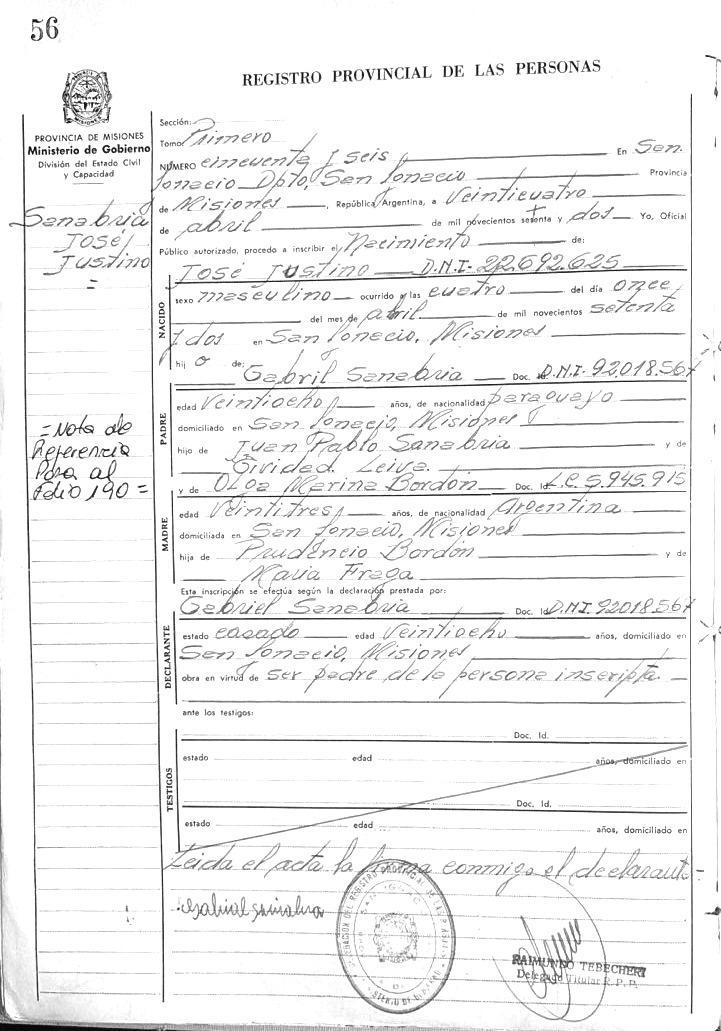 56
REGISTRO PROVINCIAL DE LAS PERSONAS
PROVINCIA DE MISIONES
Ministerio de Gobierno
División del Estado Civil
y Capacidad
Sanabria
José
Justino
=
=Nota de
Referencia
Pasa al
Folio 190=
Sección:
Tomo Primero
NÚMERO cincuenta y seis En San
Ignacio Dpto, San Ignacio Provincia
de Misiones, República Argentina, a Veinticuatro
de abril de mil novecientos setenta y dos Yo, Oficial
Público autorizado, procedo a inscribir el Nacimiento de:
José Justino D.N.I- 22.692.625
NACIDO
sexo masculino ocurrido a las cuatro del día once
del mes de abril de mil novecientos setenta
y dos en San Ignacio, Misiones
hijo de:
Gabril Sanabria Doc. Id. D.N.I- 92.018.567
PADRE
edad Veintiocho años, de nacionalidad paraguayo
domiciliado en San Ignacio, Misiones
hijo de Juan Pablo Sanabria y de
Leiva
y de Olga Marina Bordón Doc. Id. L.C 5.945.915
MADRE
edad Veintitres años, de nacionalidad Argentina
domiciliada en San Ignacio, Misiones
hija de Prudencio Bordón y de
Maria Fraga
Esta inscripción se efectúa según la declaración prestada por:
Gabriel Sanabria Doc. Id. D.N.I 92.018.567
DECLARANTE
estado casado edad Veintiocho años, domiciliado en
San Ignacio, Misiones
obra en virtud de ser padre de la persona inscripta.
ante los testigos:
TESTIGOS
Doc. Id.
estado edad años, domiciliado en
Doc. Id.
estado edad años, domiciliado en
Leida el acta la firma conmigo el declarante=
Gabriel Sanabria
RAIMUNDO TEBECHERI
Delegado Titular R.P.P.